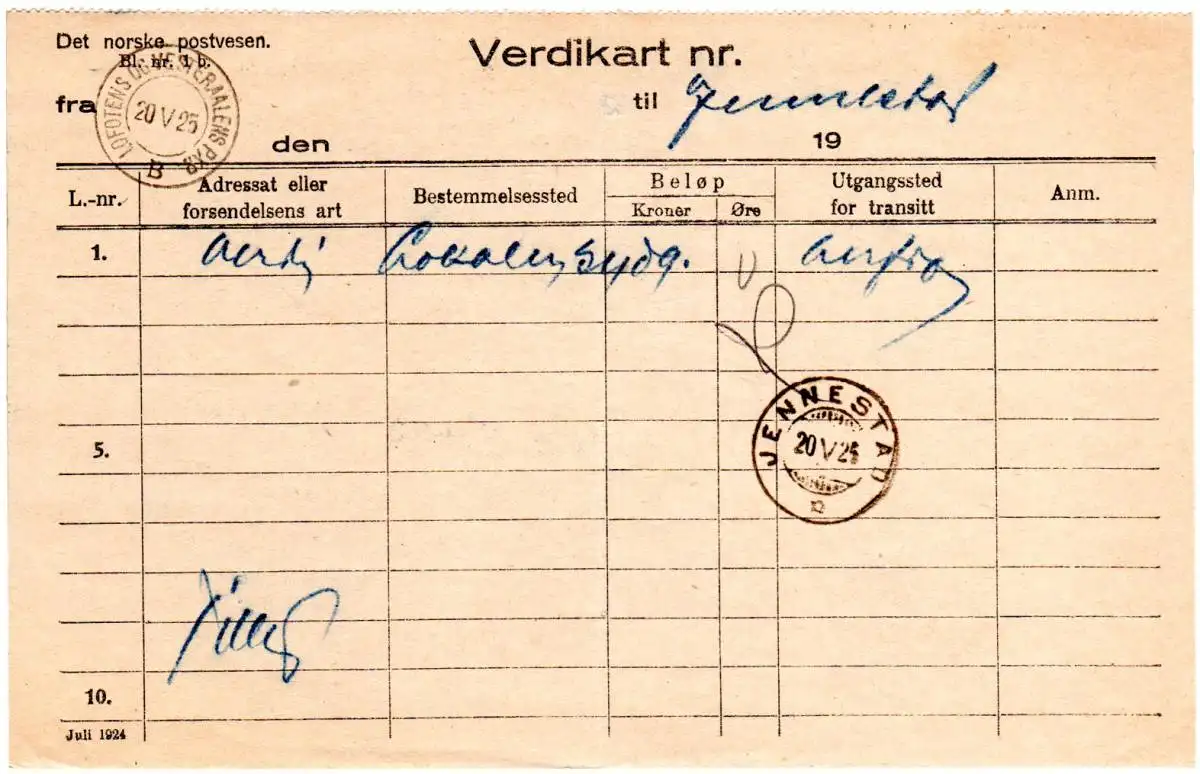 Det norske postvesen.
Bl. nr. 1 b.
Verdikart nr.
fra
til Jennestad
den
19
LOFOTENS OG VESTERAALENS P.XP.
20 V 25
B
L.-nr.
Adressat eller
forsendelsens art
Bestemmelsessted
Beløp
Kroner
Øre
Utgangssted
for transitt
Anm.
1.
5.
JENNESTAD
20 V 25
10.
Juli 1924